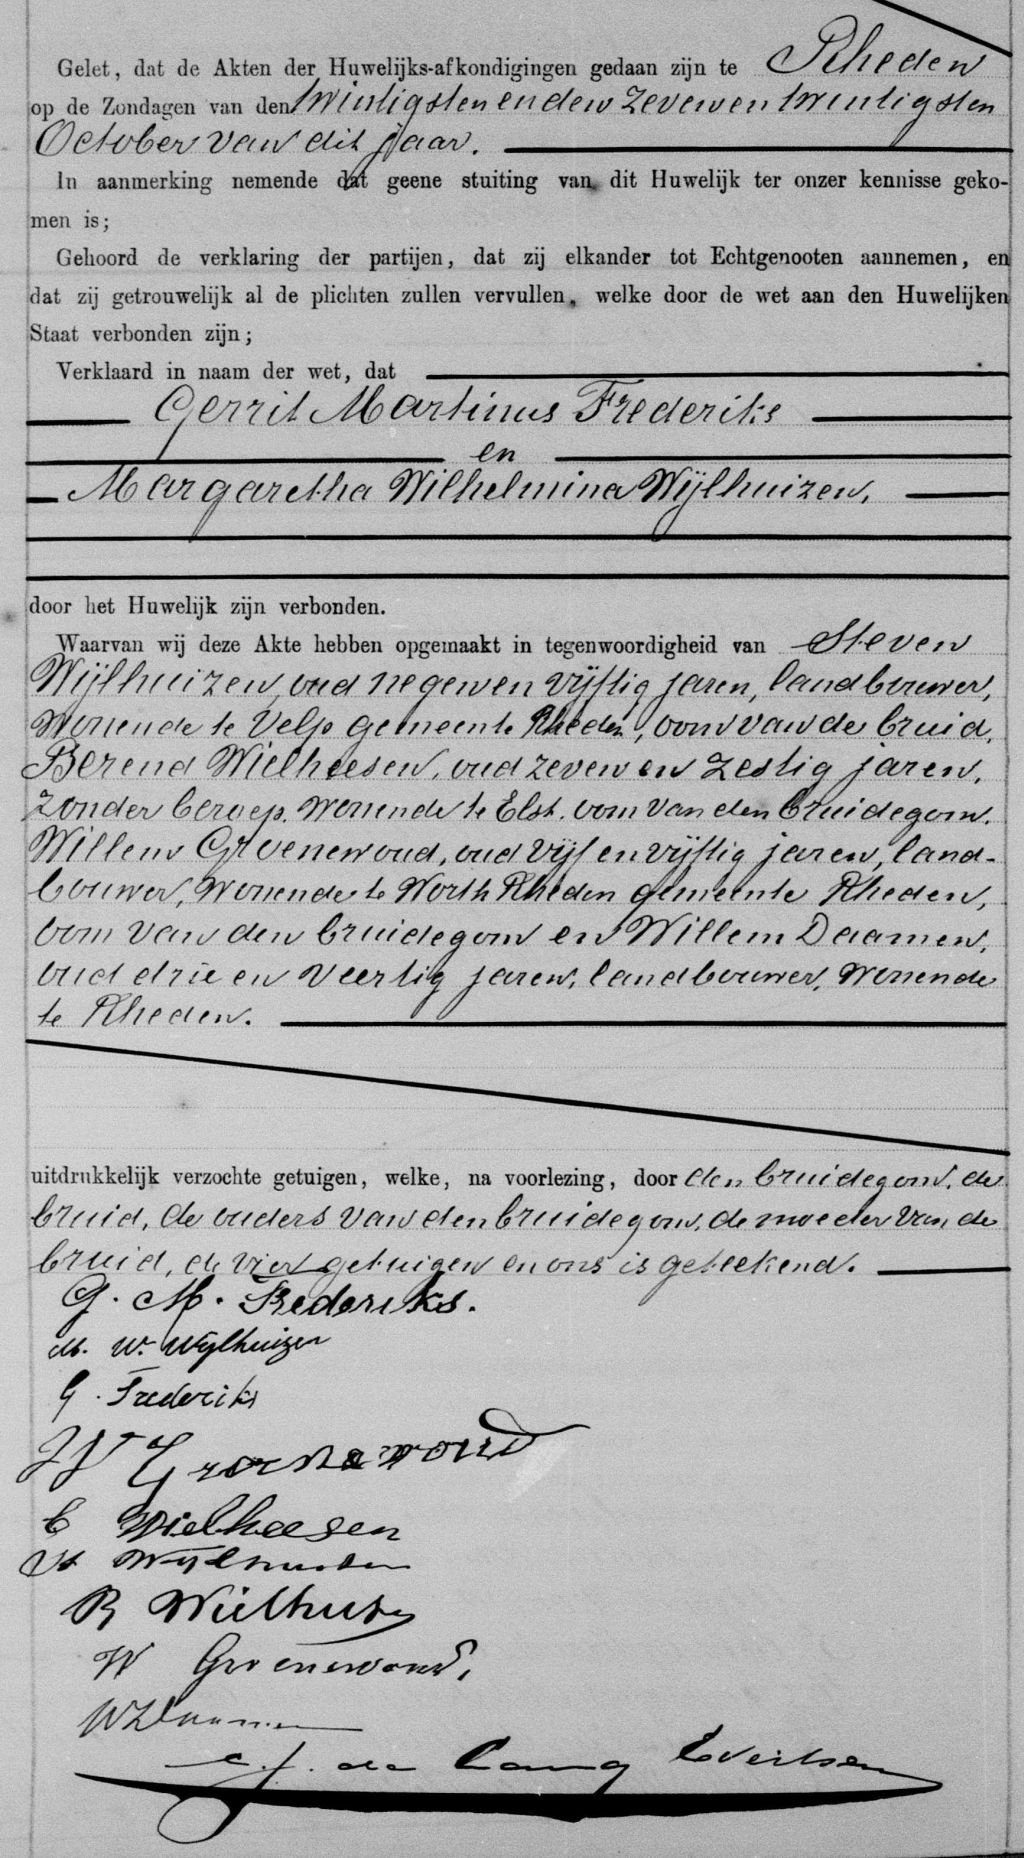 Gelet, dat de Akten der Huwelijks-afkondigingen gedaan zijn te Rheden
op de Zondagen van den twintigsten en den zeven en twintigsten
October van dit jaar.
In aanmerking nemende dat geene stuiting van dit Huwelijk ter onzer kennisse geko-
men is;
Gehoord de verklaring der partijen, dat zij elkander tot Echtgenooten aannemen, en
dat zij getrouwelijk al de plichten zullen vervullen, welke door de wet aan den Huwelijken
Staat verbonden zijn;
Verklaard in naam der wet, dat
Gerrit Martinus Frederiks
en
Margaretha Wilhelmina Wijlhuizen,
door het Huwelijk zijn verbonden.
Waarvan wij deze Akte hebben opgemaakt in tegenwoordigheid van Steven
Wijlhuizen, oud negen en vijftig jaren, landbouwer,
wonende te Velp gemeente Rheden, oom van de bruid,
Berend Wielheesen, oud zeven en zestig jaren,
zonder beroep, wonende te Elst, oom van den bruidegom.
Willem Groenewoud, oud vijf en vijftig jaren, land-
bouwer, wonende te Worth Rheden gemeente Rheden,
oom van den bruidegom en Willem Daamen,
oud drie en veertig jaren, landbouwer, wonende
te Rheden.
uitdrukkelijk verzochte getuigen, welke, na voorlezing, door den bruidegom, de
bruid, de ouders van den bruidegom, de moeder van de
bruid, de vier getuigen en ons is geteekend.
G. M. Frederiks.
M. W. Wijlhuizen
G. Frederiks
W Groenewoud
Wielheesen
St Wijlhuizen
B Wielhesen
W Groenewoud,
W Daamen
de Lang Evertsen